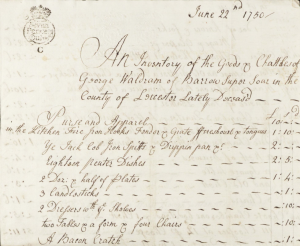 June 22nd 1750
An Inventory of the Goods & Chattles of
George Waldram of Barrow super Soar in the
County of Leicester Lately Deceased
Purse and Apparel
In the Kitchen Fire Iron Hooks Fender & Grate
Ye Jack Iron Spitts & Drippin pan
Eighteen Pewter Dishes
2 Doz: & half of Plates
3 Candlesticks
2 Dressers wth Shelves
Two Tables & a form & four Chairs
A Bacon Cratch